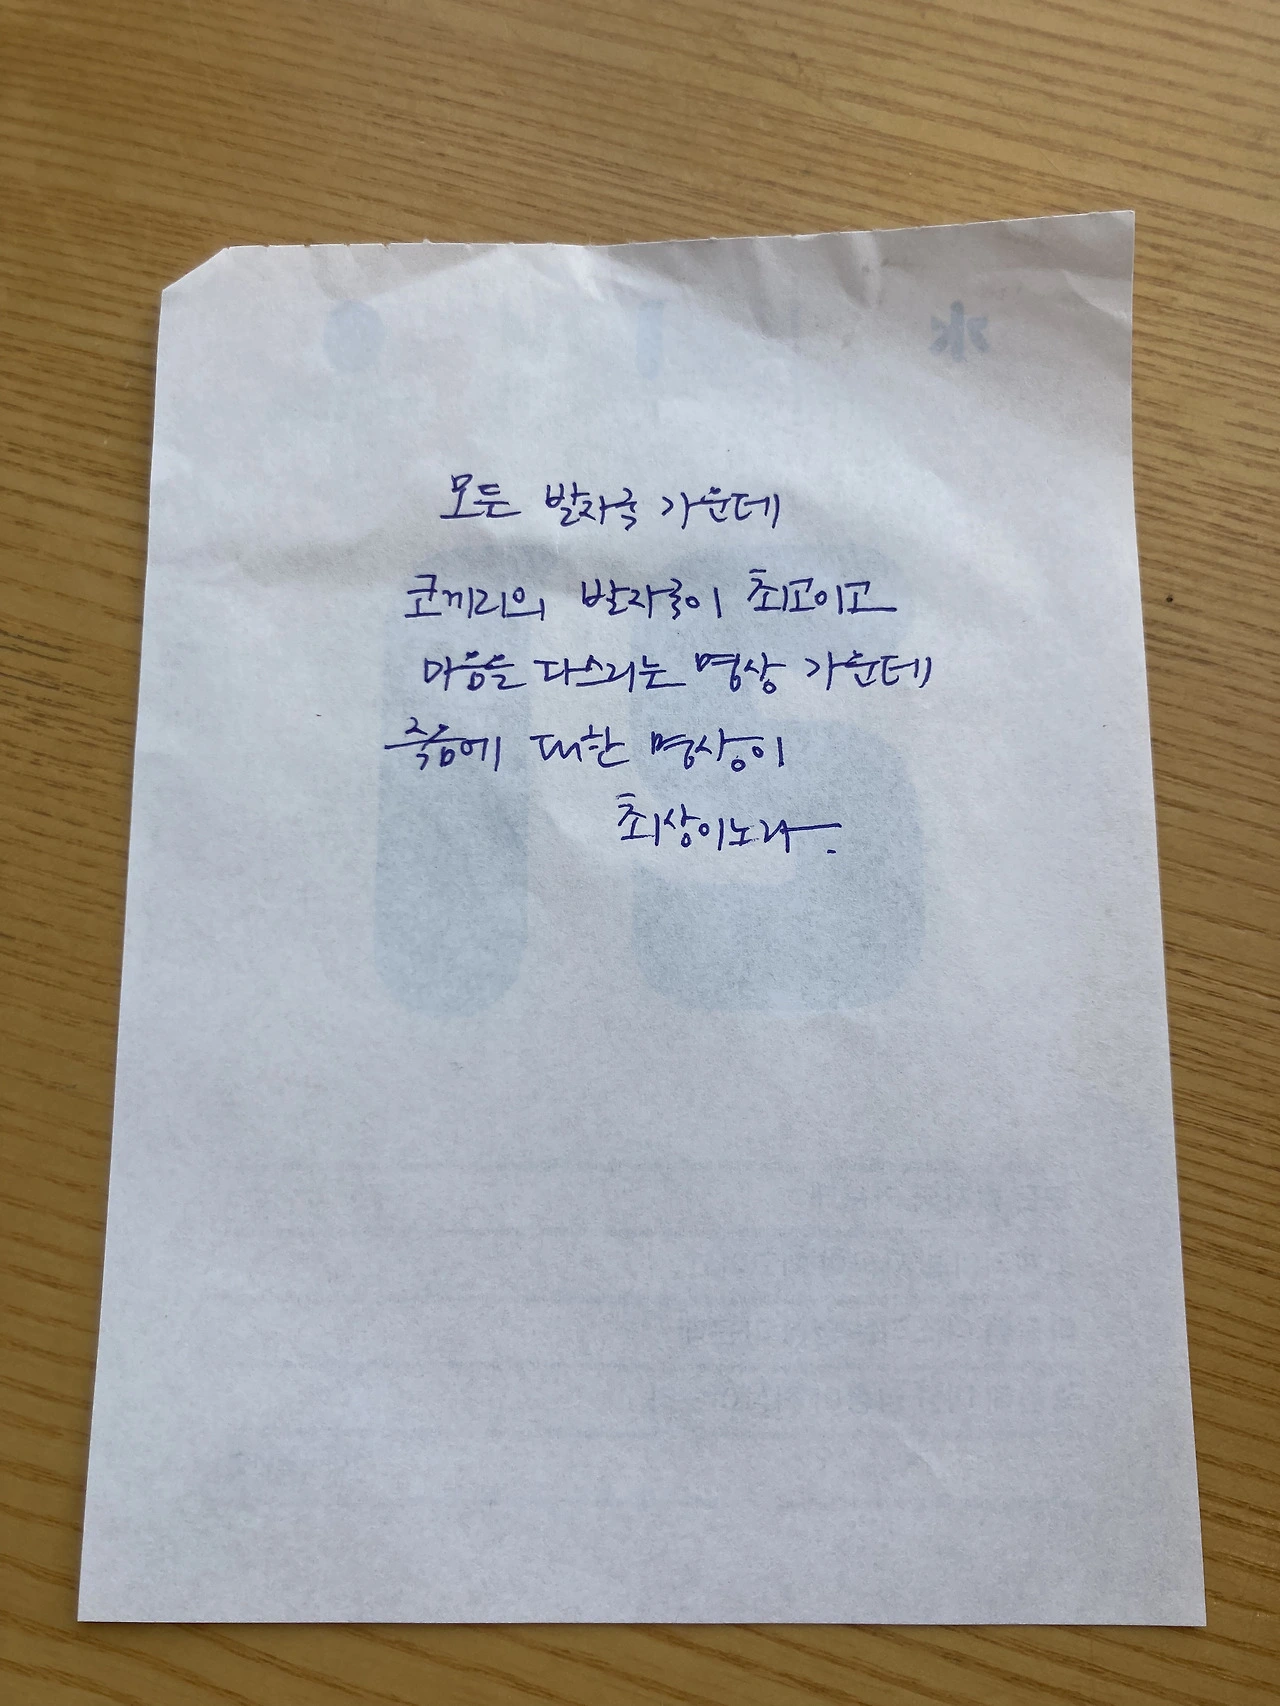 모든 발자국 가운데
코끼리의 발자국이 최고이고
마음을 다스리는 명상 가운데
죽음에 대한 명상이
최상이노라.